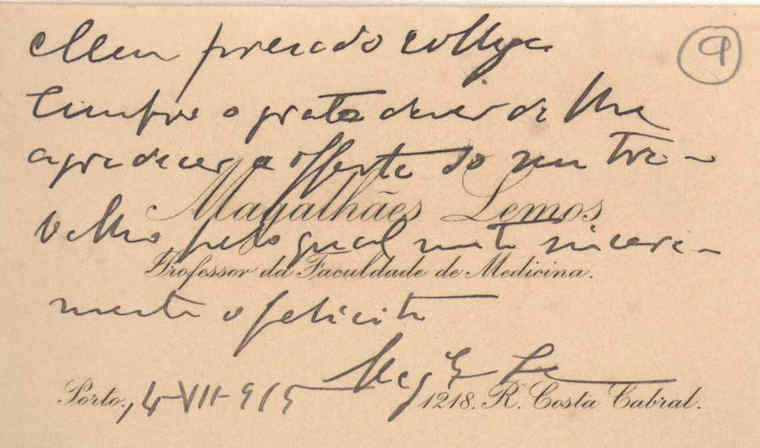 Meu presado collega
9
Cumpro o grato dever de lhe
agradecer a offerta do seu tra-
Magalhães Lemos
balho pelo qual muito sincera-
Professor da Faculdade de Medicina.
mente o felicito
Mag Le
Porto, 4-VII-915
1218. R. Costa Cabral.